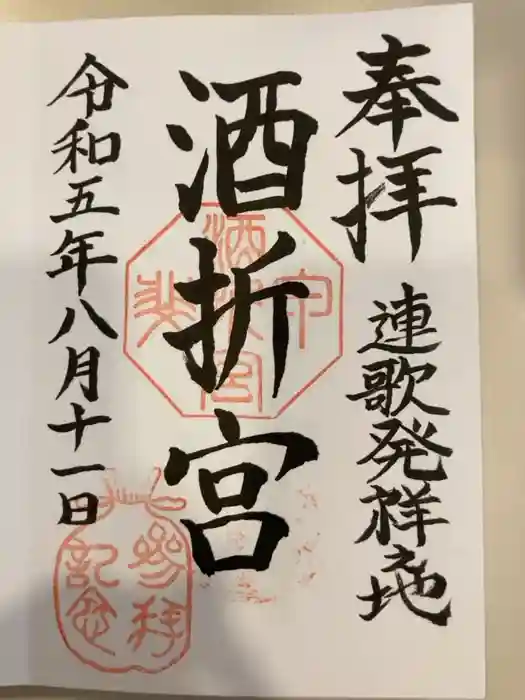 奉拝
連歌発祥地
酒折宮
令和五年八月十一日
酒折宮
甲斐
参拝
記念